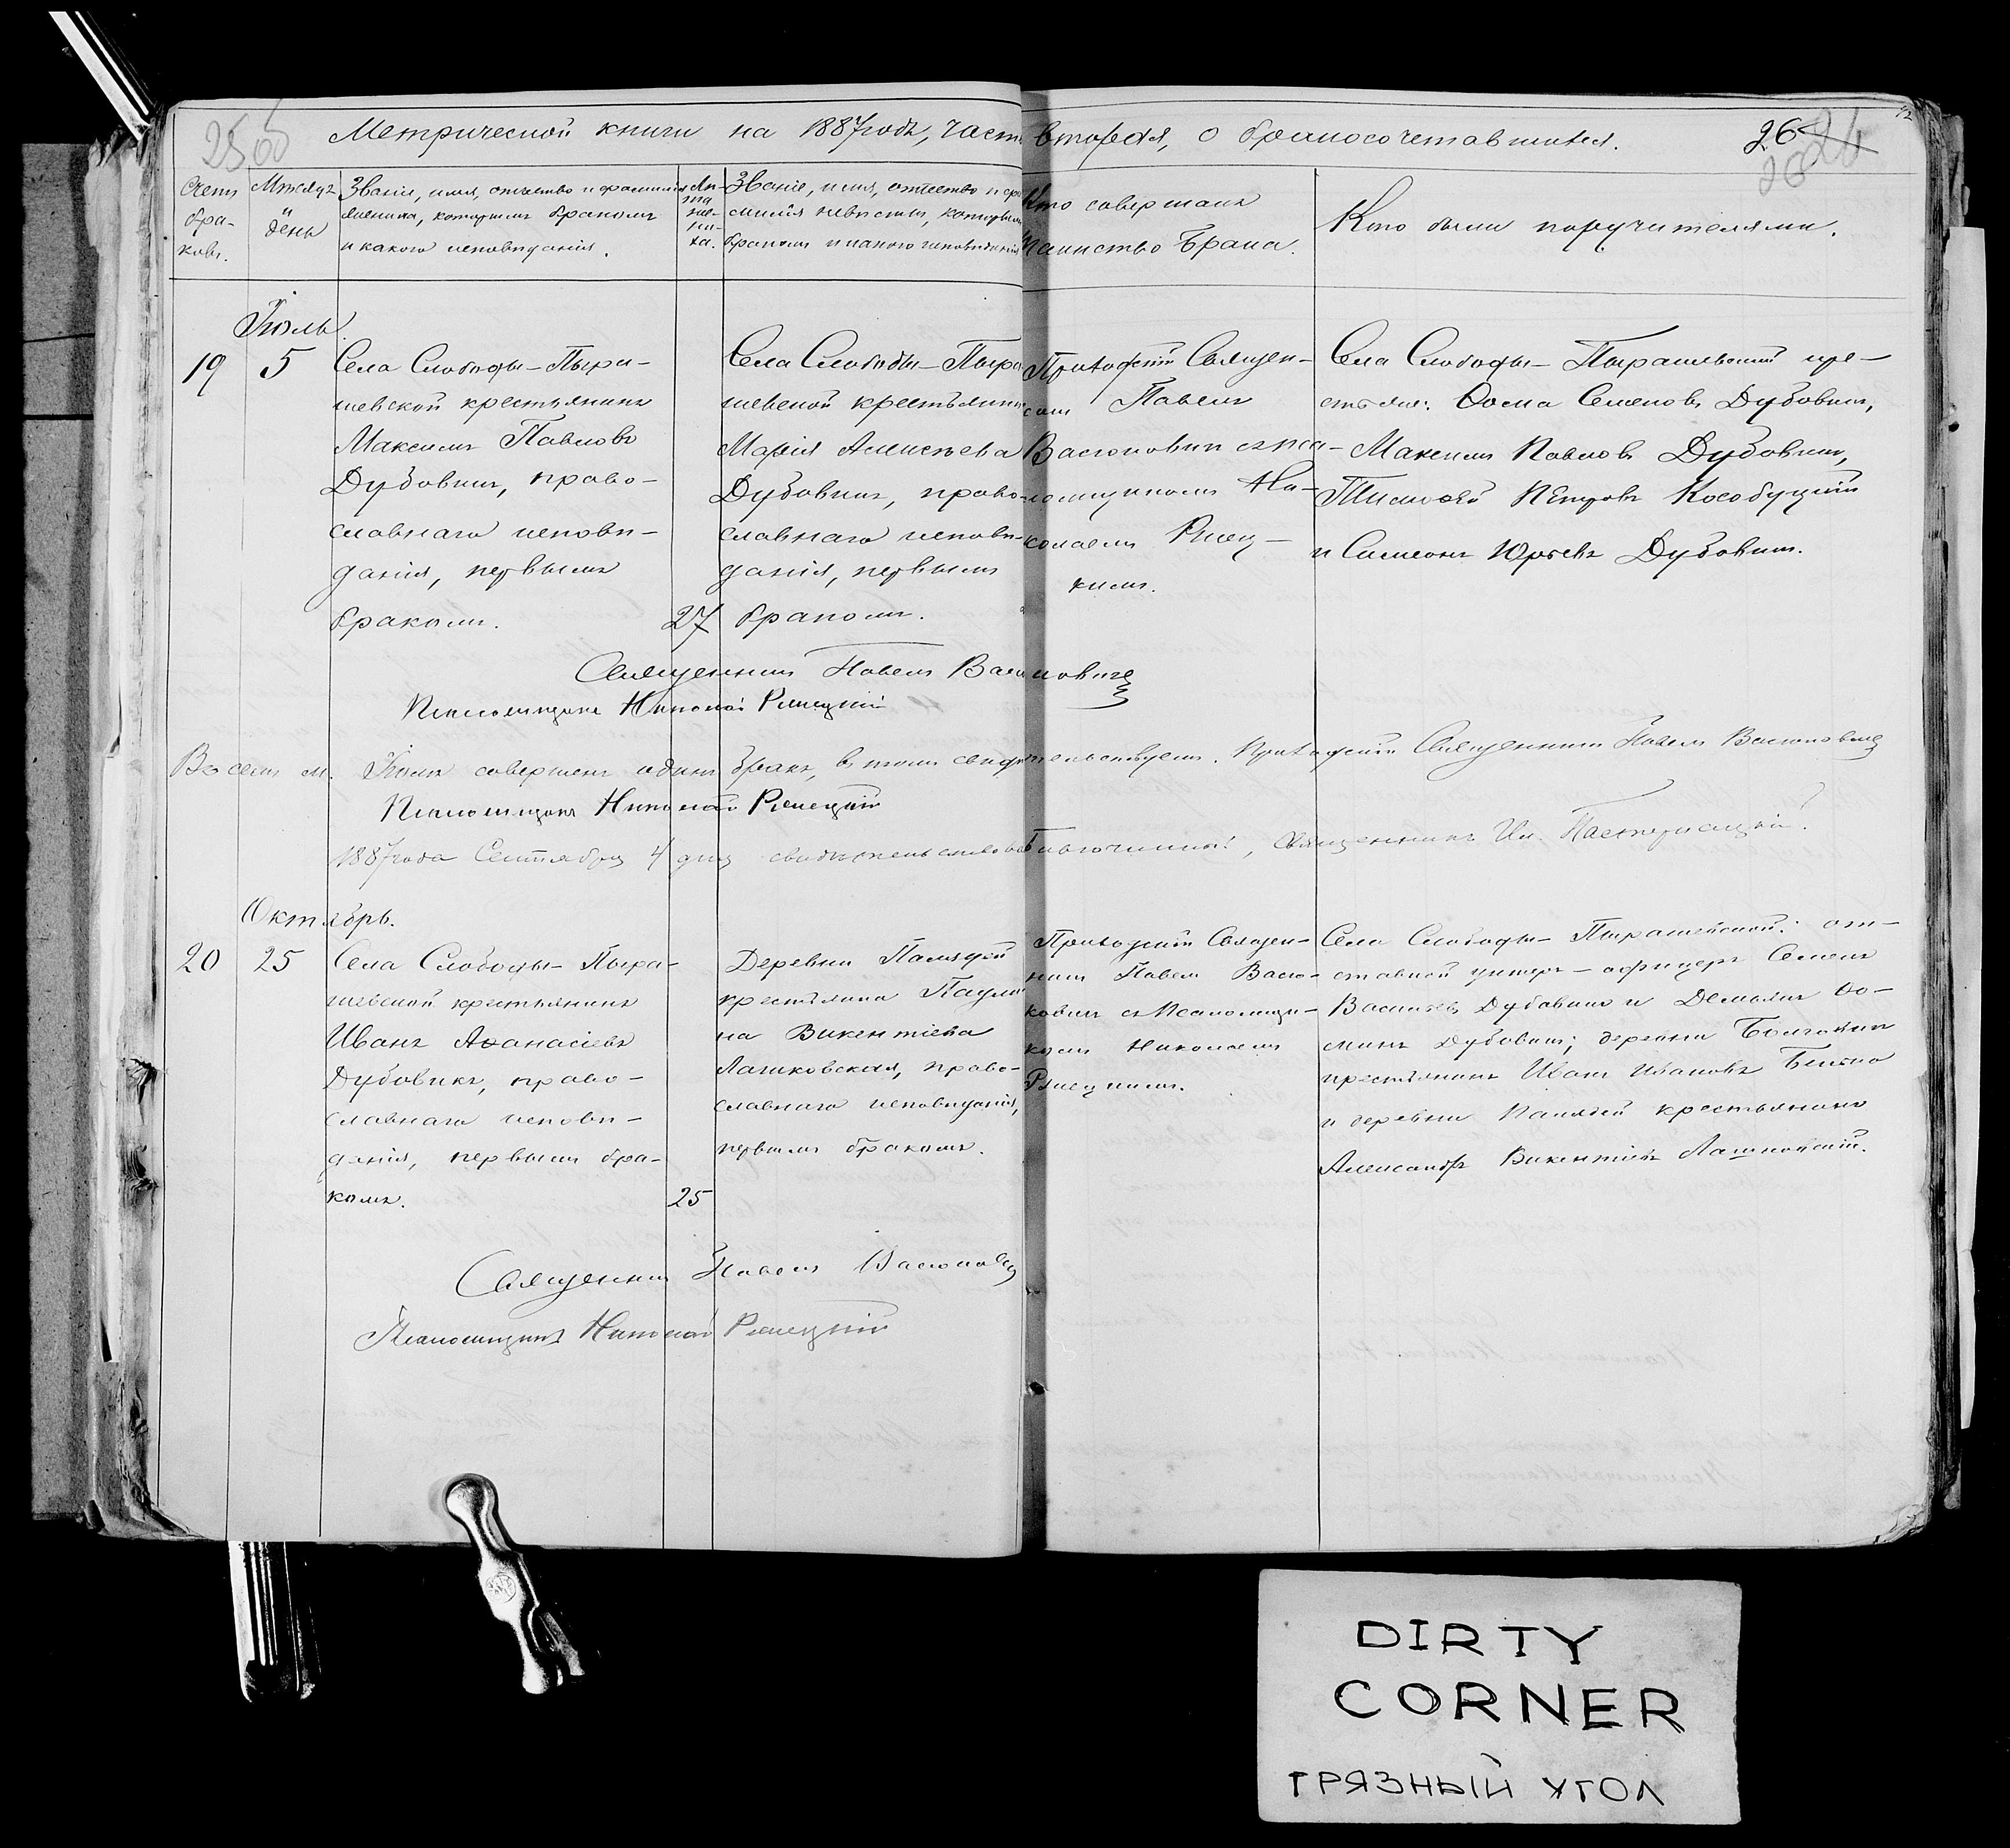 Метрической книги на 1887 годъ, часть вторая, о бракосочетавшихся.
26
Счетъ браковъ.
Мѣсяцъ и день
Званіе, имя, отчество и фамилія
жениха, которымъ бракомъ
и какого исповѣданія.
Лѣта жениха.
Званіе, имя, отчество и фамилія невѣсты, которымъ
бракомъ и какого исповѣданія
Кто совершалъ
таинство Брака.
Кто были поручителями.
Іюль
19
5
Села Слободы-Пыра-
шевской крестьянинъ
Максимъ Павловъ
Дубовикъ, право-
славнаго исповѣ-
данія, первымъ
бракомъ.
27
Села Слободы-Пыра
шевской крестьянка
Марія Алексѣева
Дубовикъ, право-
славнаго исповѣ-
данія, первымъ
бракомъ.
Приходскій Священ-
никъ Павелъ
Васюковичъ съ пса-
ломщикомъ Ни-
колаемъ Рѣец-
кимъ.
Села Слободы-Пырашевской кре-
стьяне: Ѳома Семеновъ Дубовикъ,
Максимъ Павловъ Дубовикъ,
Тимоѳей Петровъ Кособуцкій
и Симеонъ Юрьевъ Дубовикъ.
Священникъ Павелъ Васюковичъ
Псаломщикъ Николай
Всего въ м. Іюлѣ совершенъ одинъ бракъ, въ томъ свидѣтельствуемъ. Приходскій Священникъ Павелъ Васюковичъ
Псаломщикъ Николай
1887 года Сентября 4 дня свидѣтельствовалъ Благочинный, Священникъ Ил. Пастернацкій.
Октябрь.
20
25
Села Слободы-Пыра-
шевской крестьянинъ
Иванъ Аѳанасіевъ
Дубовикъ, право-
славнаго исповѣ-
данія, первымъ бра-
комъ.
25
Деревни
крестьянка Паули
на Викентіева
Лашковская, право-
славнаго исповѣданія,
первымъ бракомъ.
Приходскій Священ-
никъ Павелъ Васю-
ковичъ съ Псаломщи-
комъ Николаемъ
Села Слободы-Пырашевской: от-
ставной унтеръ-офицеръ Семенъ
Васильевъ Дубовикъ и Демьянъ Ѳо-
минъ Дубовикъ; деревни
крестьянинъ Иванъ Ивановъ
и деревни крестьянинъ
Александръ Викентіевъ Лашковскій.
Священникъ Павелъ Васюковичъ
Псаломщикъ Николай
DIRTY
CORNER
ГРЯЗНЫЙ УГОЛ